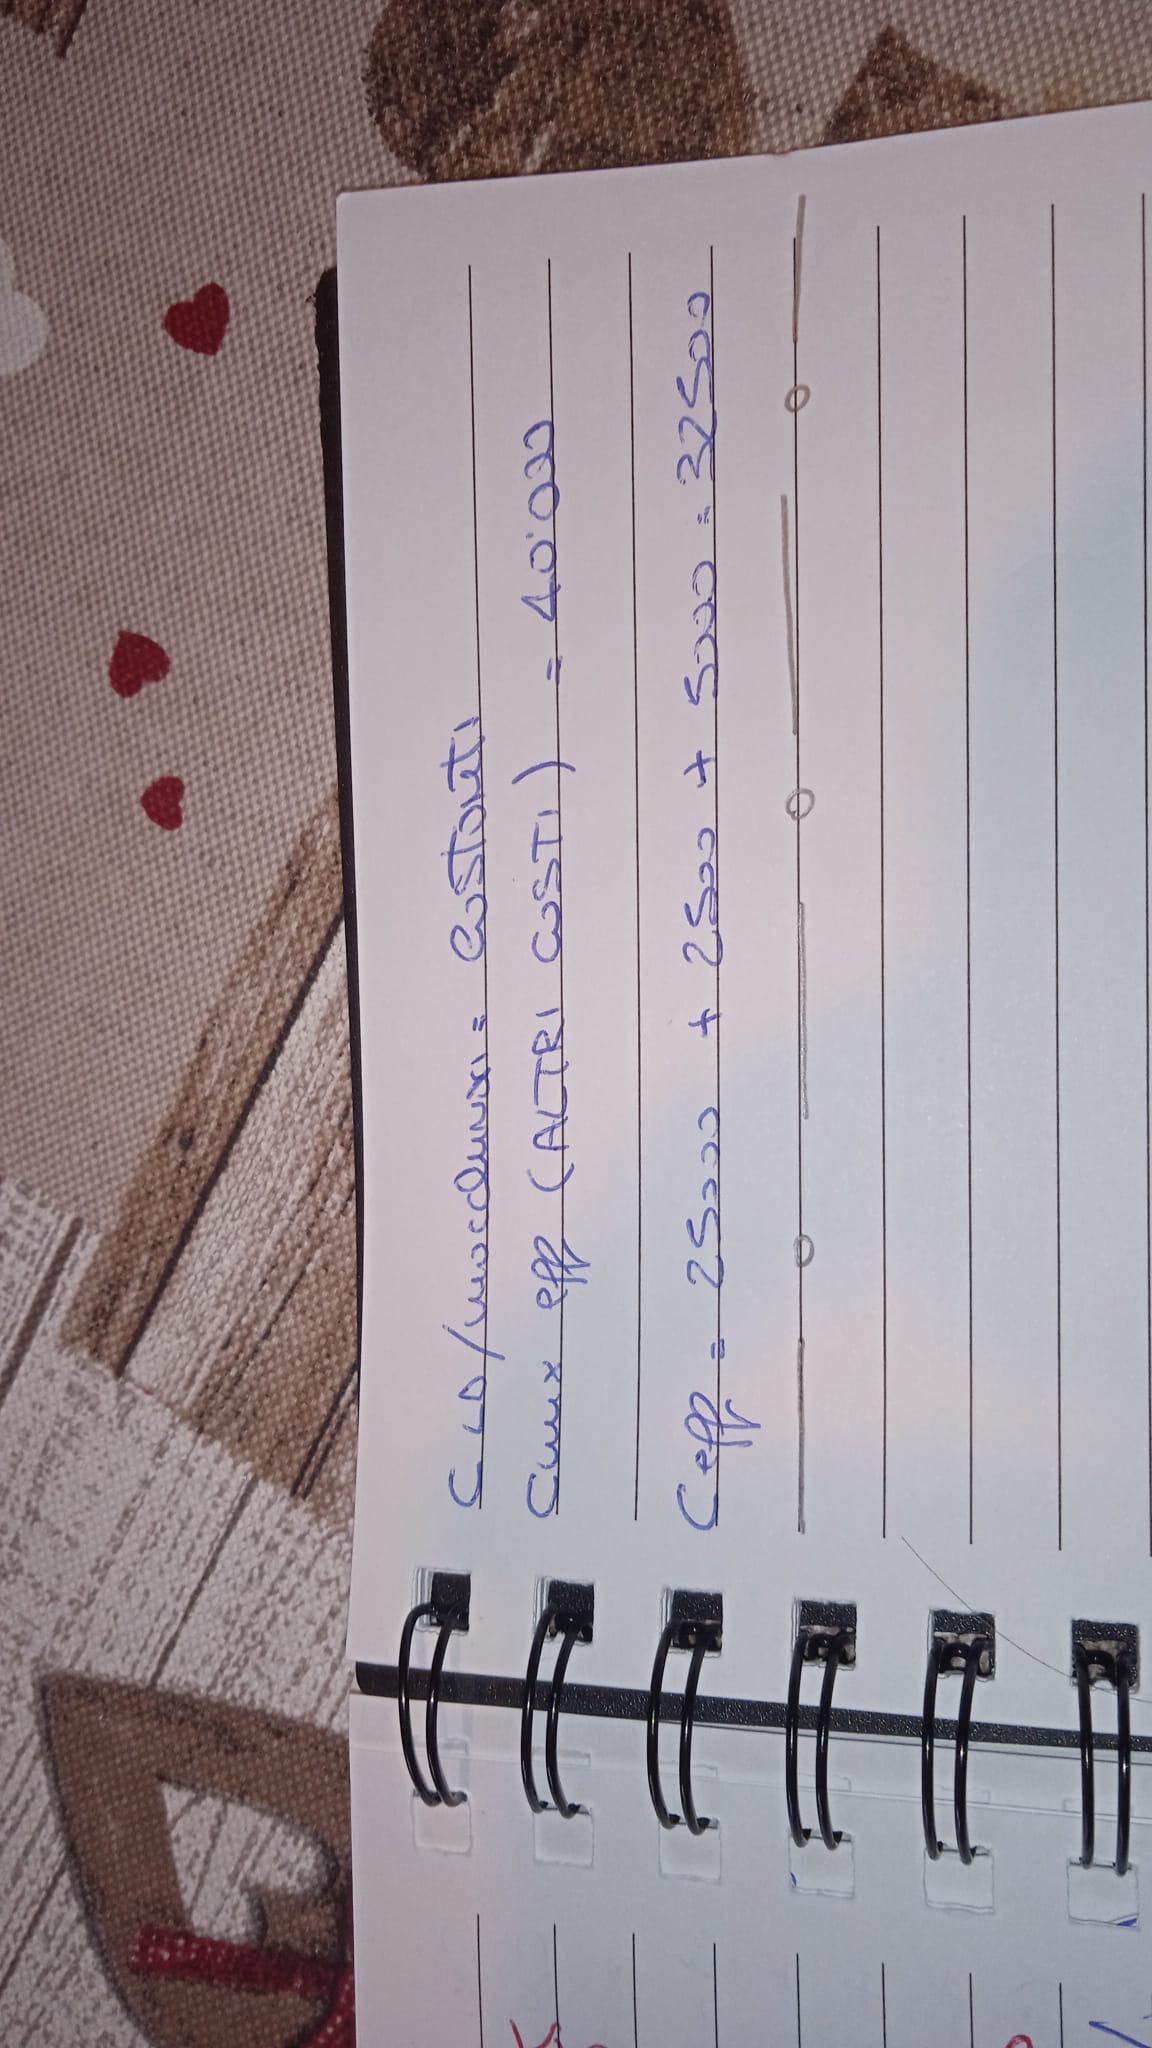 C LD/macchinari = Costanti
Cmix eff (ALTRI COSTI) = 40'000
Ceff = 25000 + 2500 + 5000 = 32500